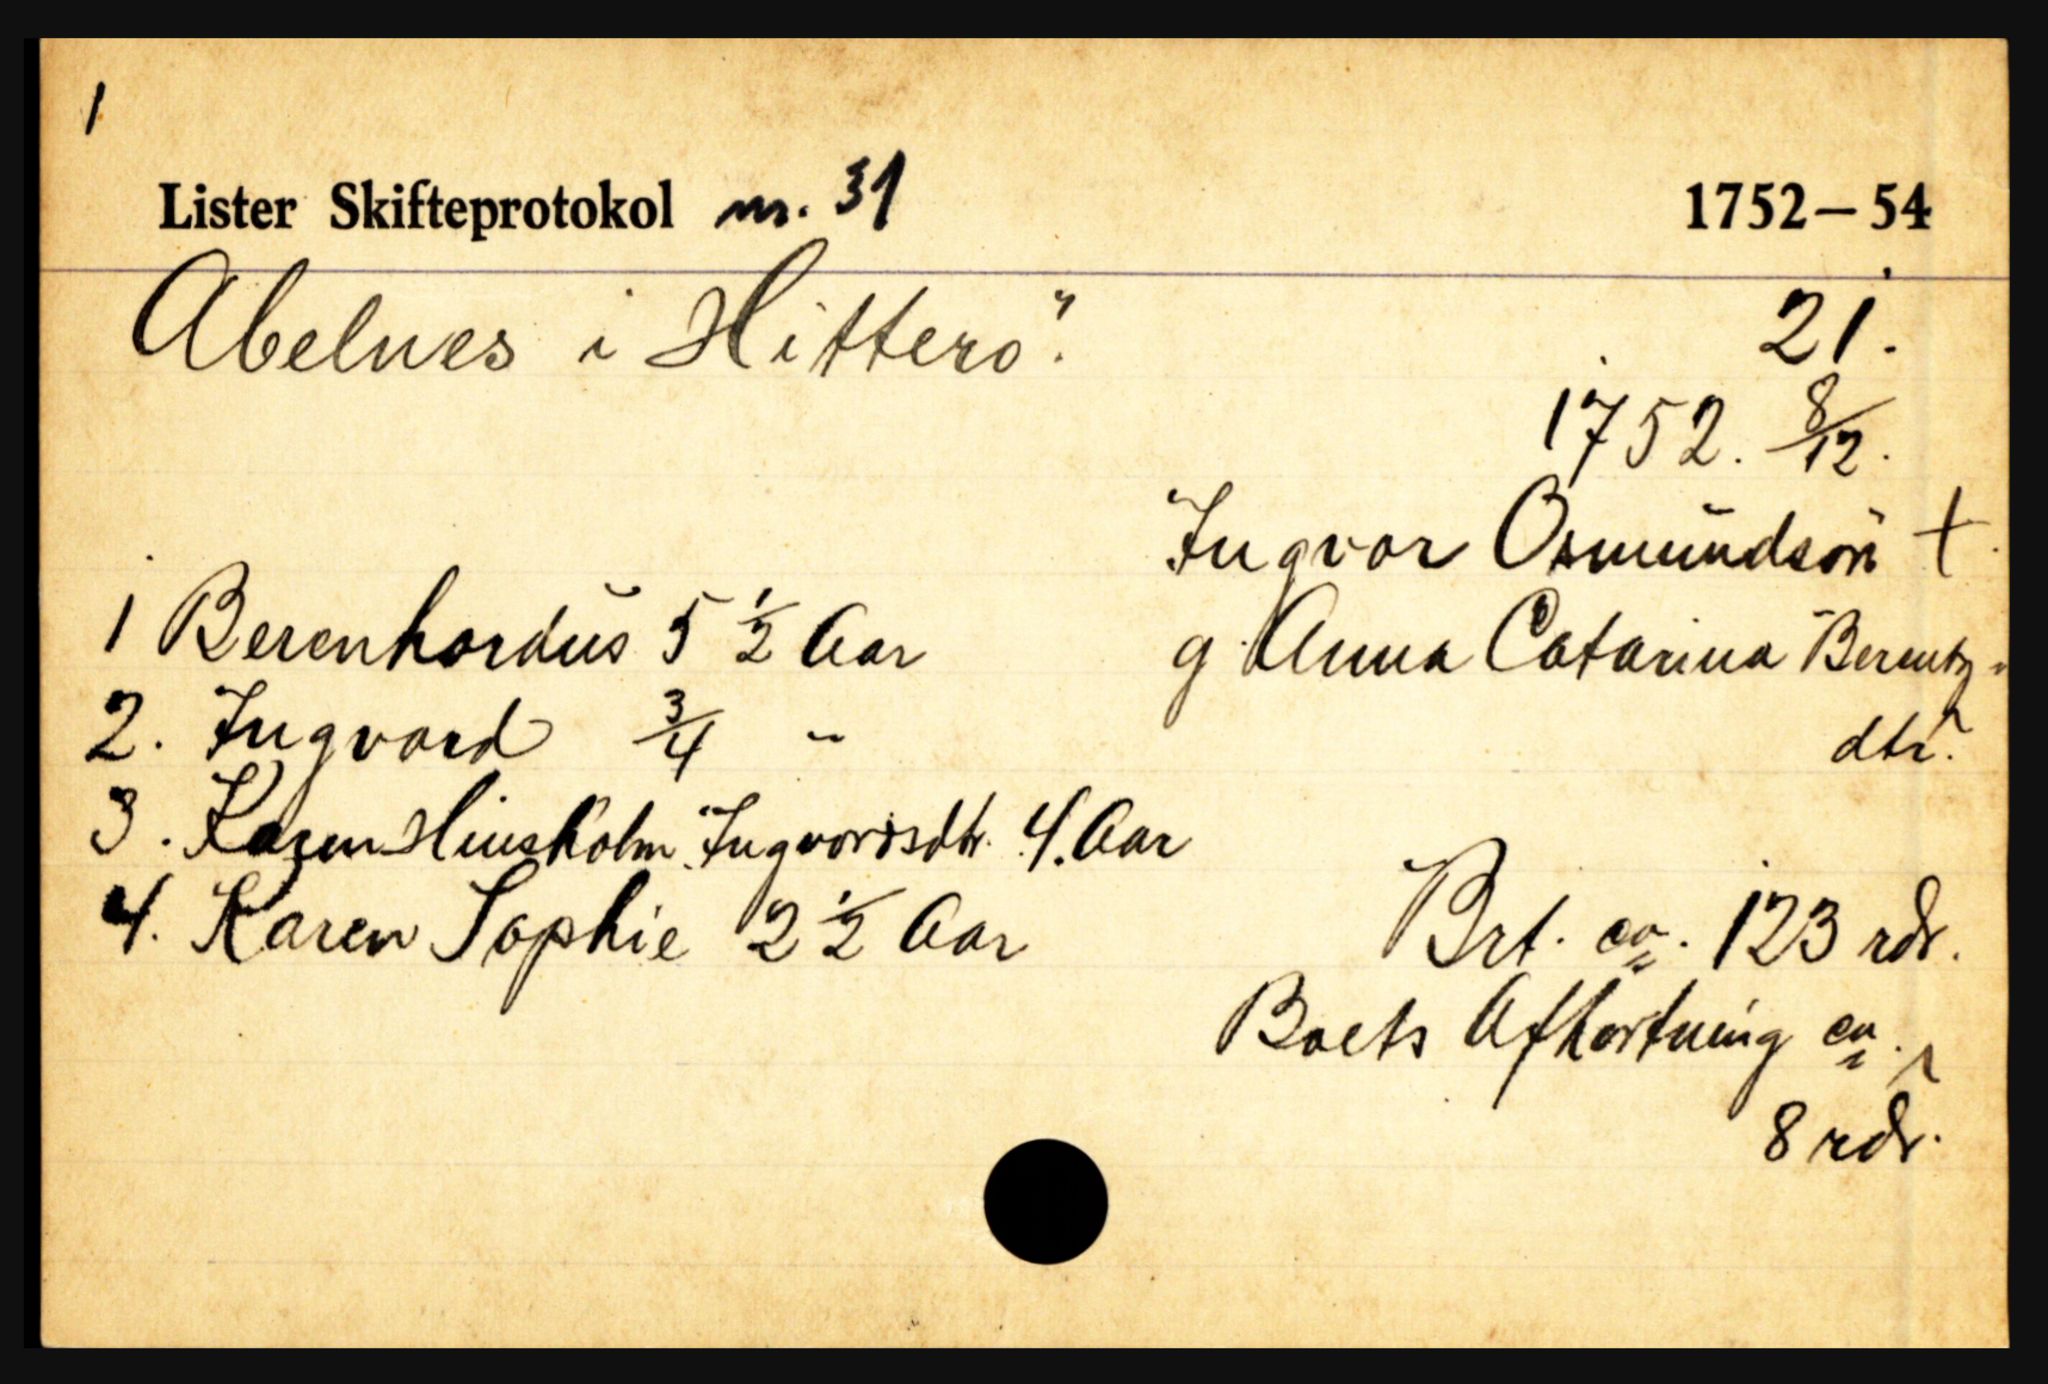 1
Lister Skifteprotokol nr. 31 1752-54
Abelnes i Hitterö. 21.
1752. 8/12.
Ingvar Osmundsön †.
g. Anna Catarina Berentz-
dtr.
1 Berenhardus 5 1/2 Aar
2. Ingvard 3/4 "
3. Karen Hinskolm Ingvardsdtr. 4. Aar
4. Karen Sophie 2 1/2 Aar
Brt. ca. 123 rdr.
Boets Afkortning ca.
8 rdr.